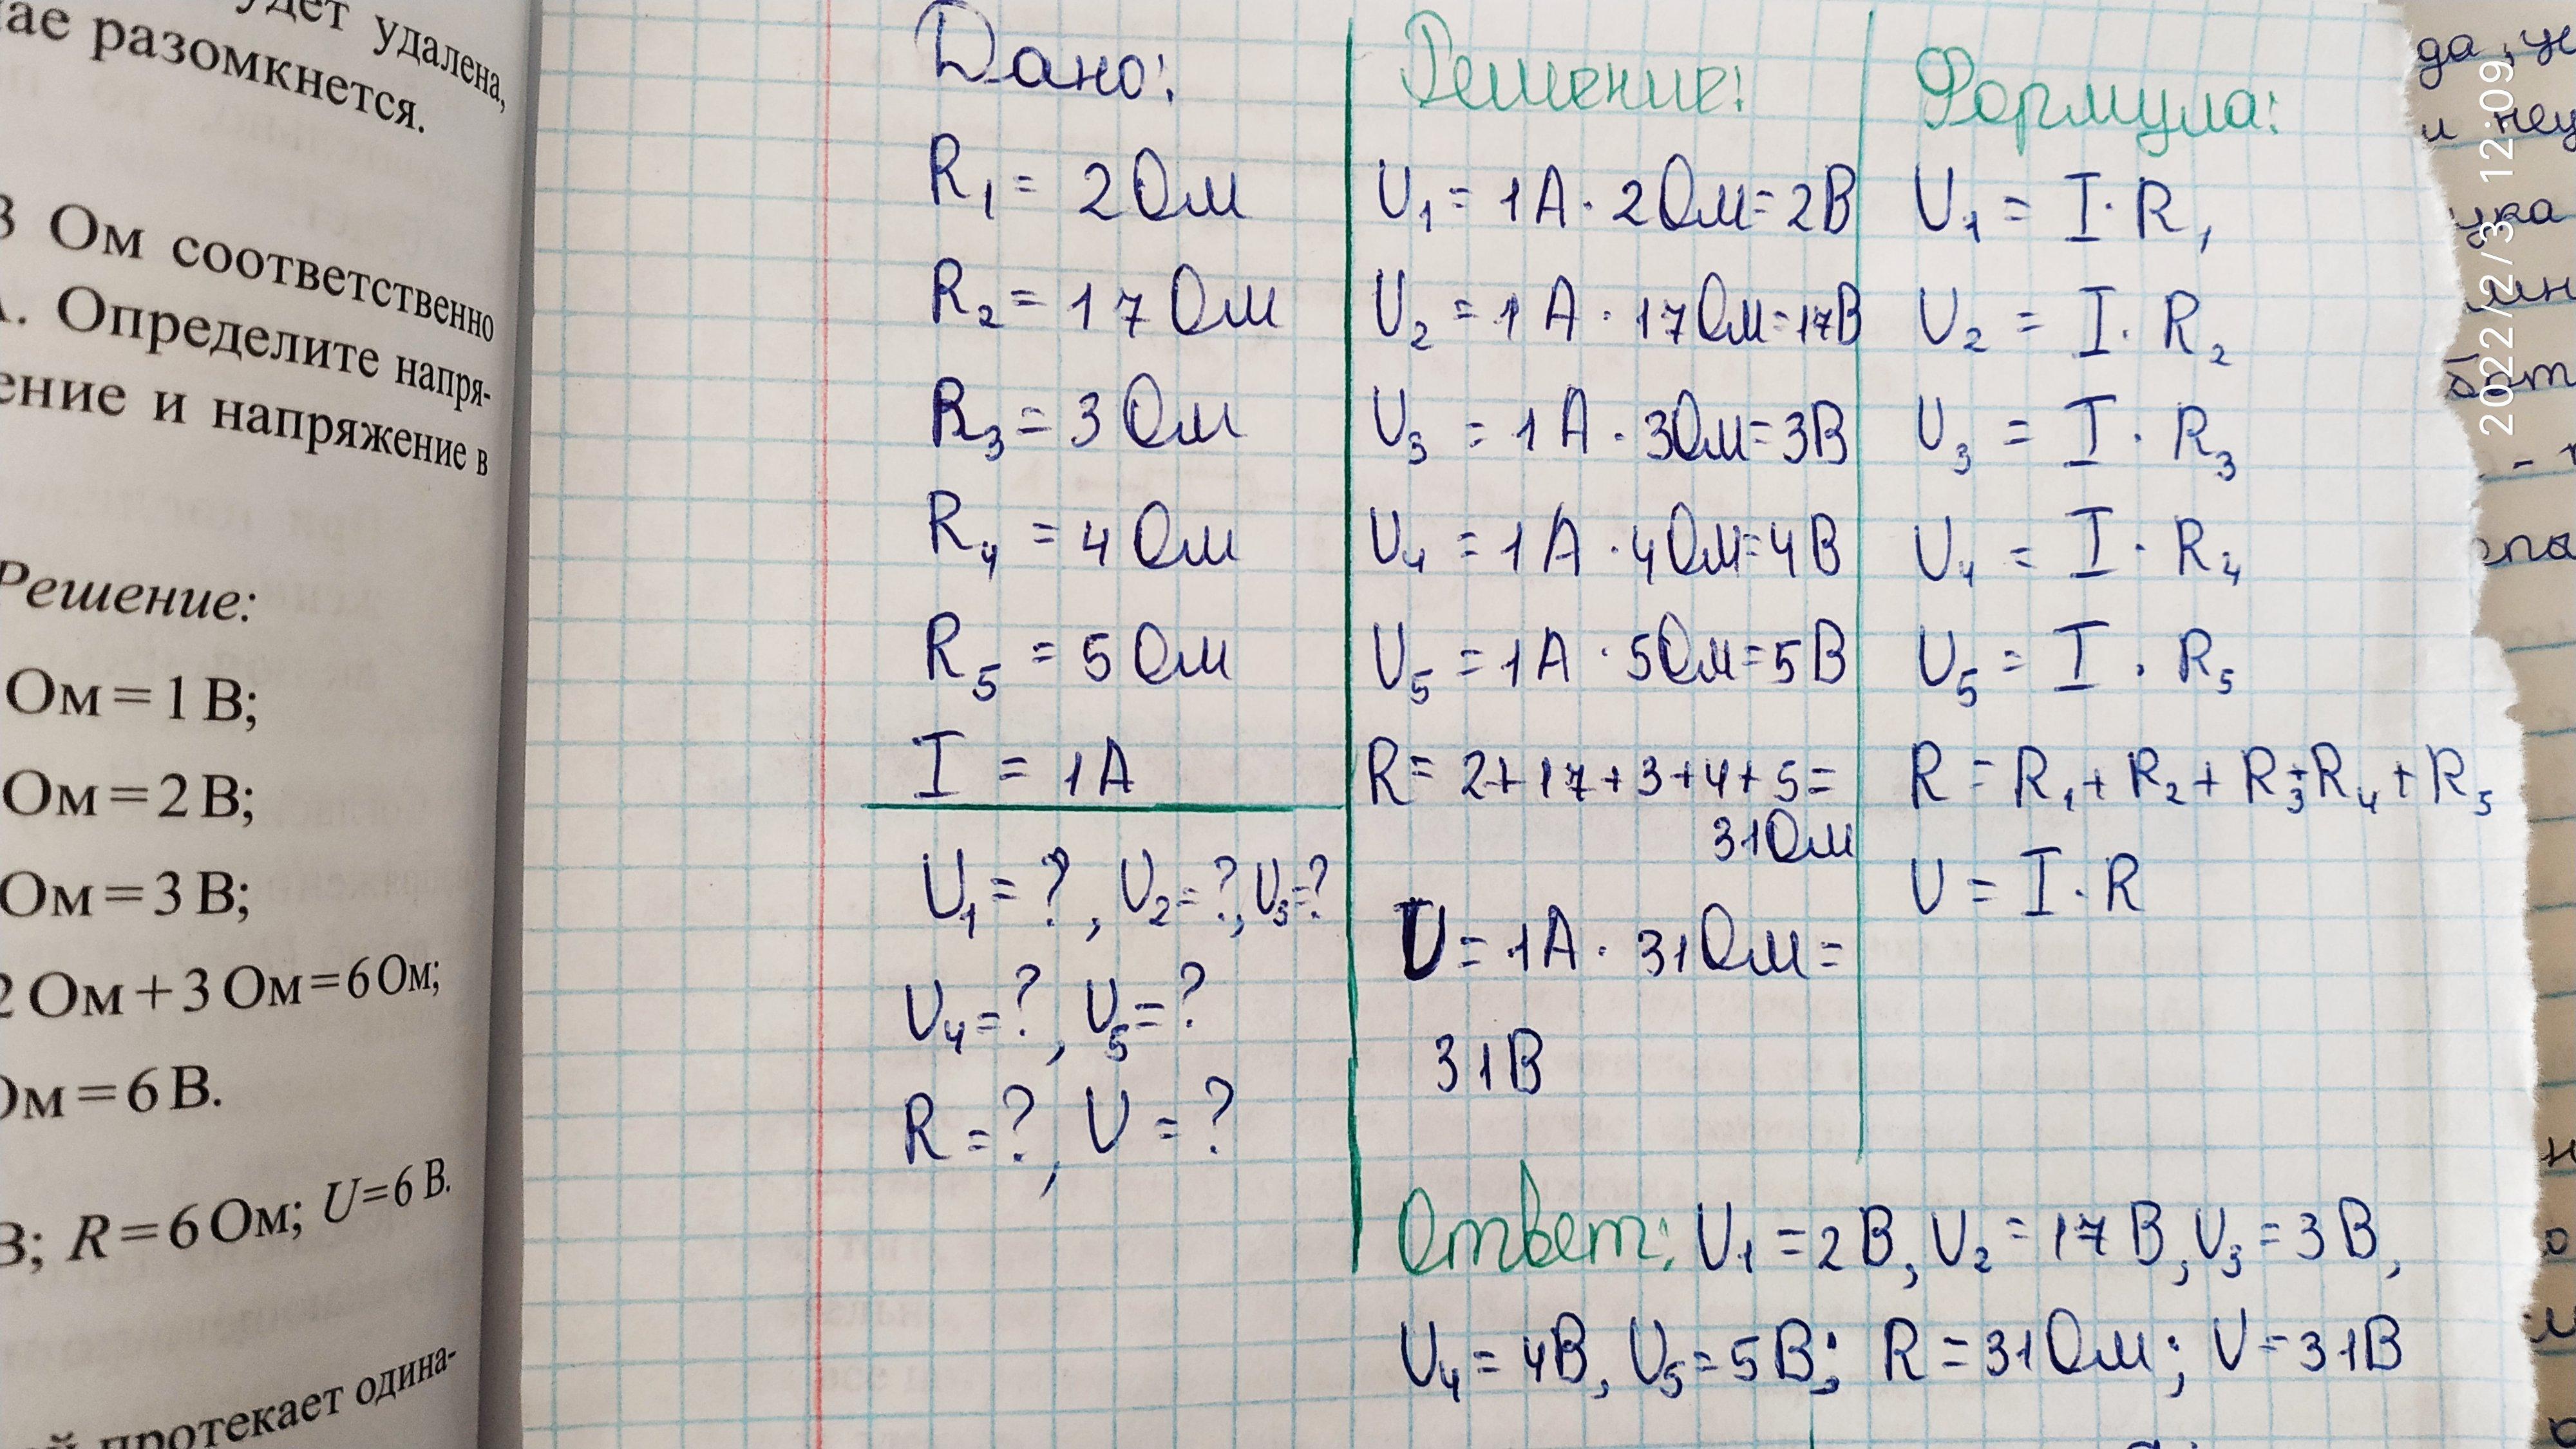 удет удалена,
разомкнется.
3 Ом соответственно
Определите напря-
ение и напряжение в
Решение:
Ом = 1 В;
Ом = 2 В;
Ом = 3 В;
2 Ом + 3 Ом = 6 Ом;
Ом = 6 В.
В; R = 6 Ом; U = 6 В.
протекает одина-
Дано:
R₁ = 2 Ом
R₂ = 17 Ом
R₃ = 3 Ом
R₄ = 4 Ом
R₅ = 5 Ом
I = 1А
U₁ = ?, U₂ = ?, U₃ = ?
U₄ = ?, U₅ = ?
R = ?, U = ?
Решение:
U₁ = 1А · 2 Ом = 2В
U₂ = 1А · 17 Ом = 17В
U₃ = 1А · 3 Ом = 3В
U₄ = 1А · 4 Ом = 4В
U₅ = 1А · 5 Ом = 5В
R = 2 + 17 + 3 + 4 + 5 =
31 Ом
U = 1А · 31 Ом =
31В
Формула:
U₁ = I · R₁
U₂ = I · R₂
U₃ = I · R₃
U₄ = I · R₄
U₅ = I · R₅
R = R₁ + R₂ + R₃ + R₄ + R₅
U = I · R
Ответ: U₁ = 2В, U₂ = 17В, U₃ = 3В,
U₄ = 4В, U₅ = 5В; R = 31 Ом; U = 31В
2022/2/3 12:09